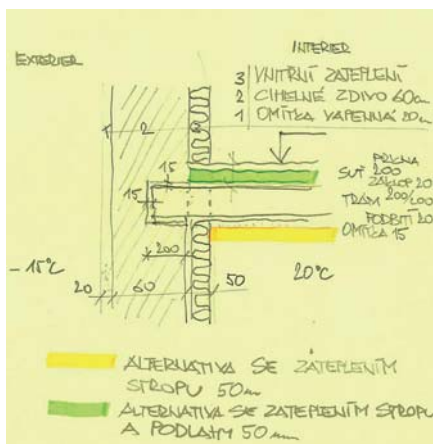 EXTERIER
INTERIER
3 VNITŘNÍ ZATEPLENÍ
2 CIHELNÉ ZDIVO 60cm
1 OMÍTKA VÁPENNÁ 20m
1 2 3
PRKNA
SUŤ 200
ZÁKLOP 20
TRÁM 200/200
PODBITÍ 20
OMÍTKA 15
15
15
200
-15°C
20 60 50
20°C
ALTERNATIVA SE ZATEPLENÍM
STROPU 50m
ALTERNATIVA SE ZATEPLENÍM STROPU
A PODLAHY 50mm